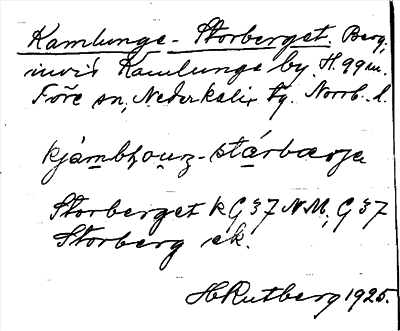 Kamlunge-Storberget. Berg,
invid Kamlunge by. H. 99 m.
Före sn, Nederkalix tg. Norrb. l.
Storberget kG 37 NM; G 37
Storberg ek.
H Rutberg 1925.